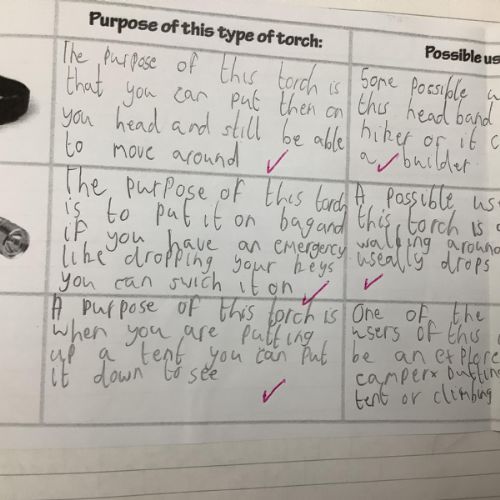 Purpose of this type of torch:
Possible us
The purpose of this torch is
that you can put then on
you head and still be able
to move around
Some possible u
this head band
hiker or it c
a builder
The purpose of this torch
is to put it on bag and
if you have an emergency
like dropping your keys
you can swich it on
A possible us
this torch is a
walking around
useally drops
A purpose of this torch is
when you are putting
up a tent you can put
it down to see
One of the
users of this
be an explore
camper putting
tent or climbing